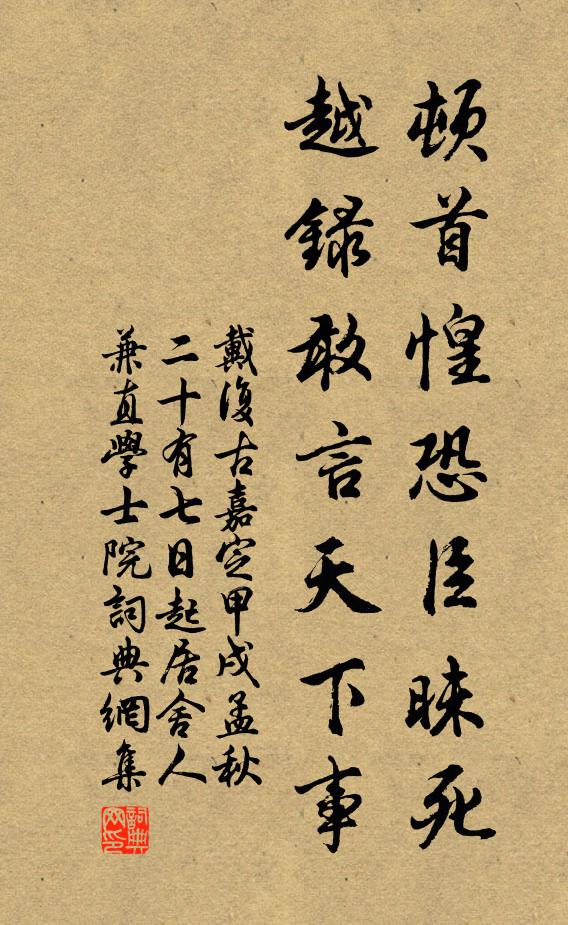 頓首惶恐臣昧死
越錄敢言天下事
戴復古嘉定甲戌孟秋
二十有七日起居舍人
兼直學士院詞典網集
詞典网印